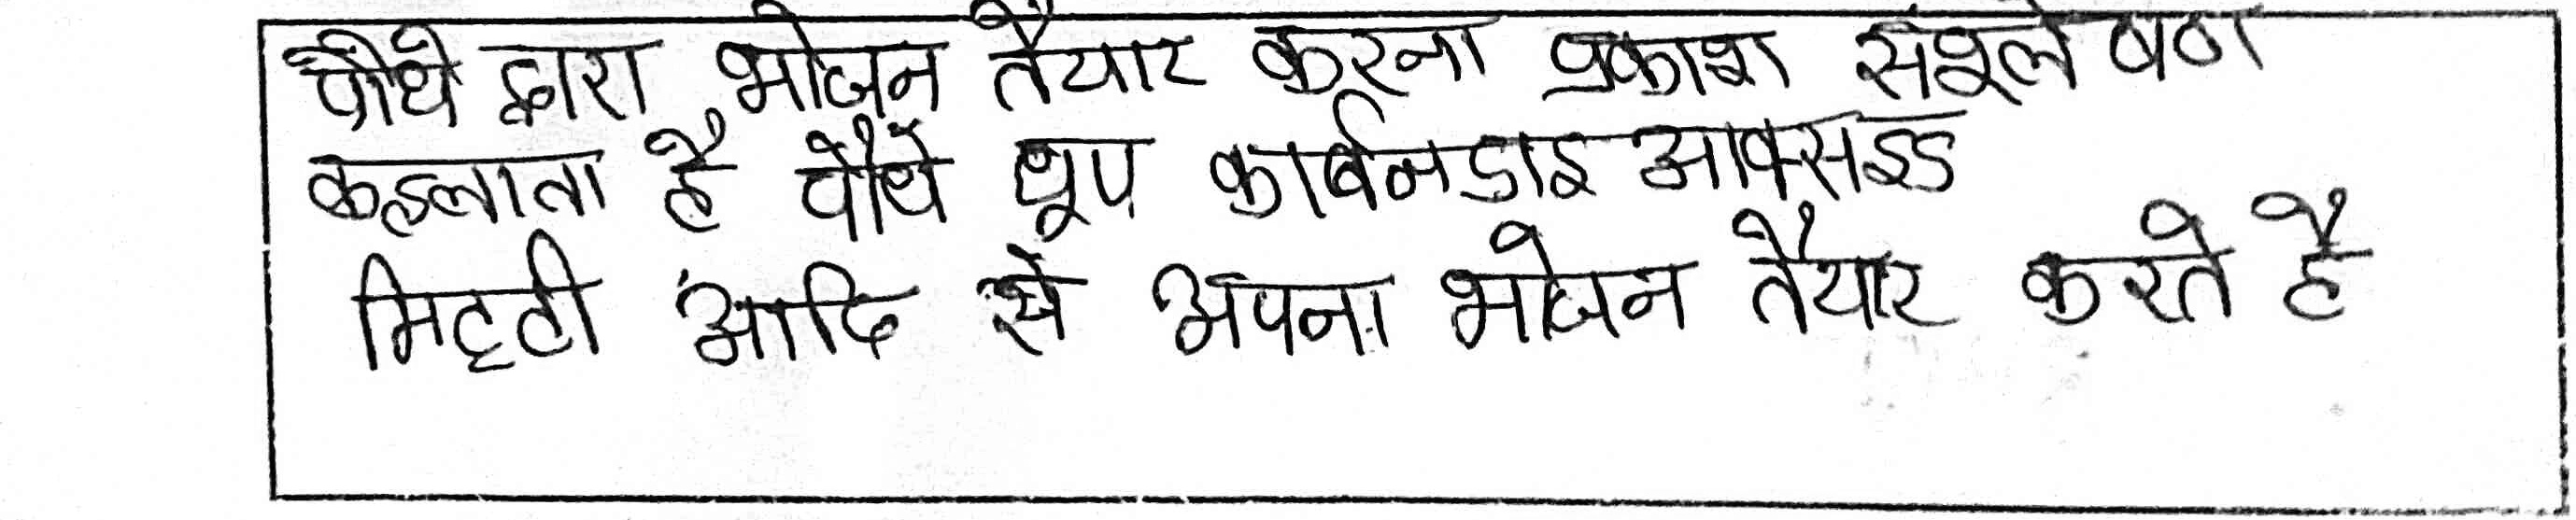 पौधे द्वारा भोजन तैयार करना प्रकाश संश्लेषण
कहलाता है पौधे धूप कार्बनडाइ आक्सइड
मिट्टी आदि से अपना भोजन तैयार करते है